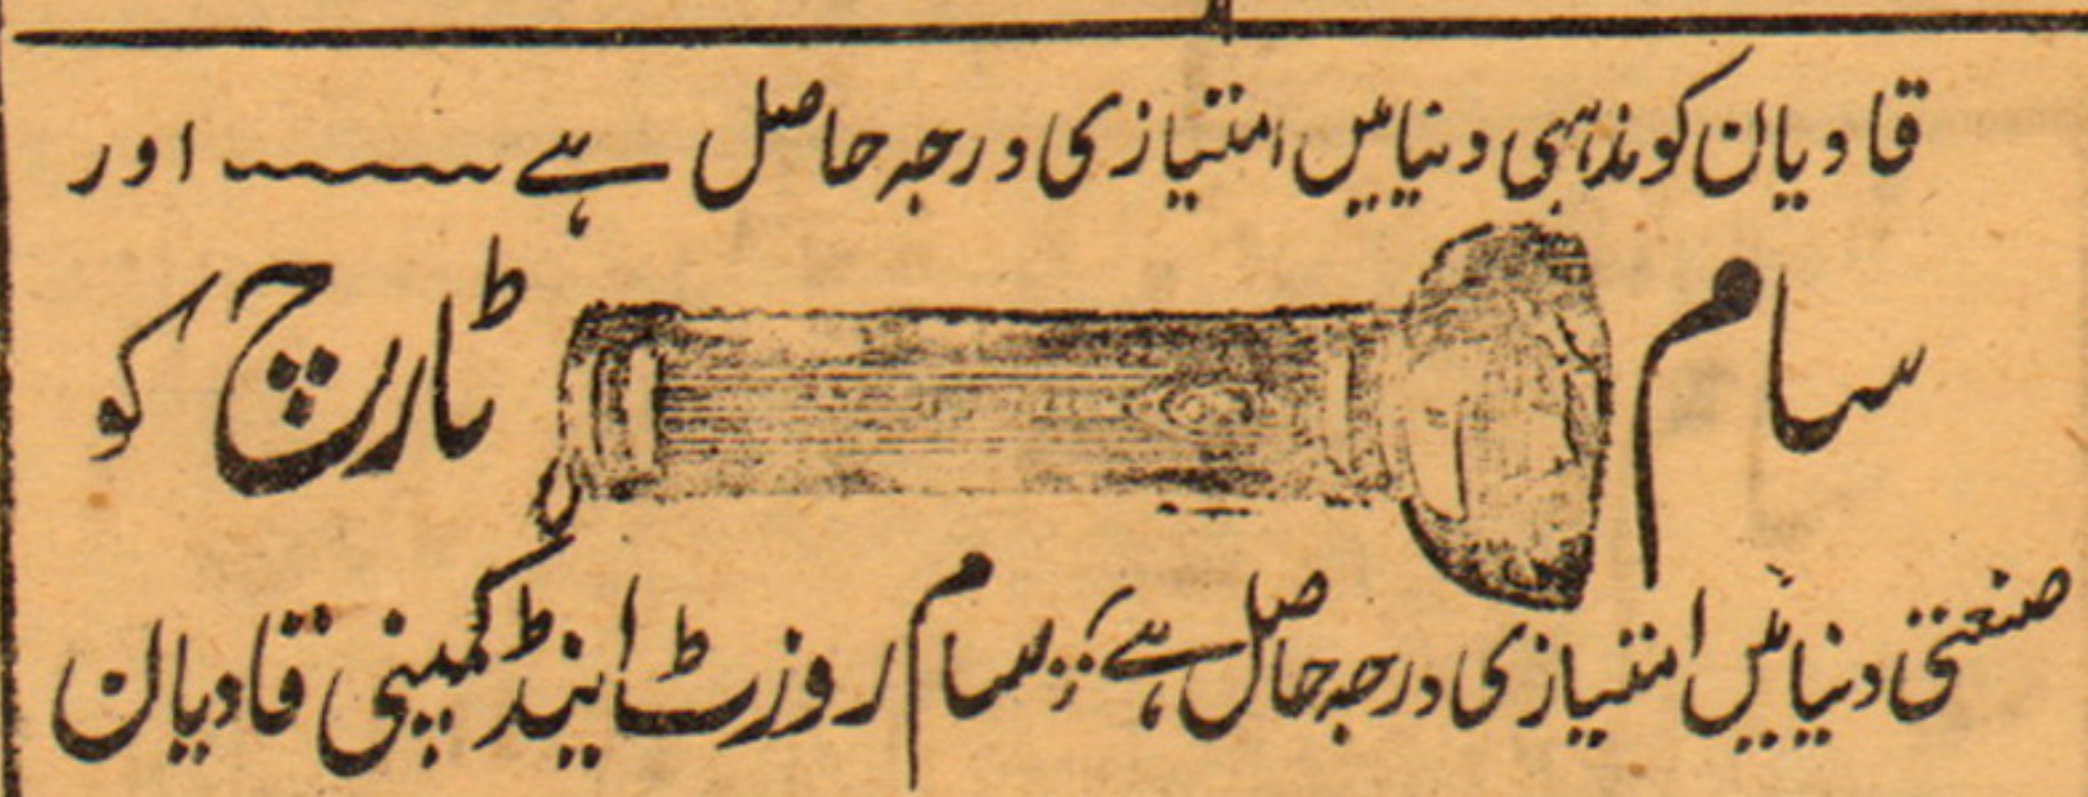 قادیان کو مذہبی دنیا میں امتیازی درجہ حاصل ہے ۔۔۔۔۔۔ اور
سام ٹارچ کو
صنعتی دنیا میں امتیازی درجہ حاصل ہے؛ سام روزٹ اینڈ کمپنی قادیان